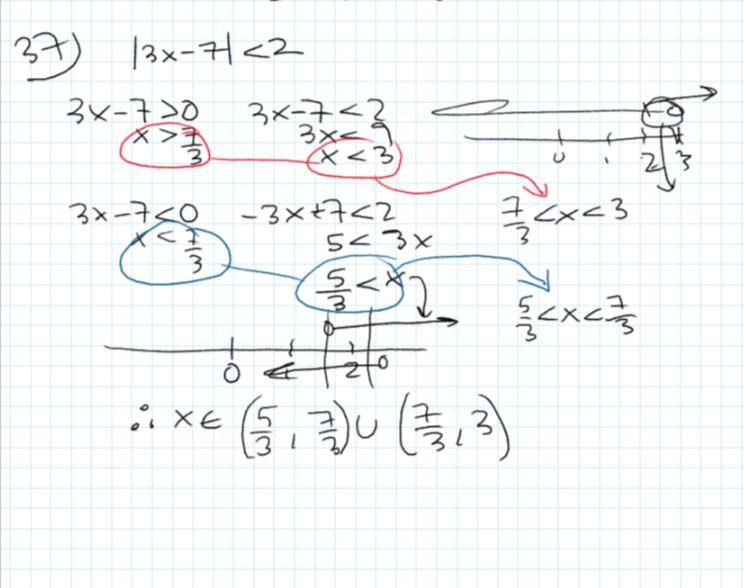 37) |3x-7|<2
3x-7>0 3x-7<2
x>7/3 3x<9
x<3
0 1 2 3
3x-7<0 -3x+7<2 7/3<x<3
x<7/3 5<3x
5/3<x
5/3<x<7/3
0 2
∴ x∈ (5/3, 7/3)∪(7/3, 3)